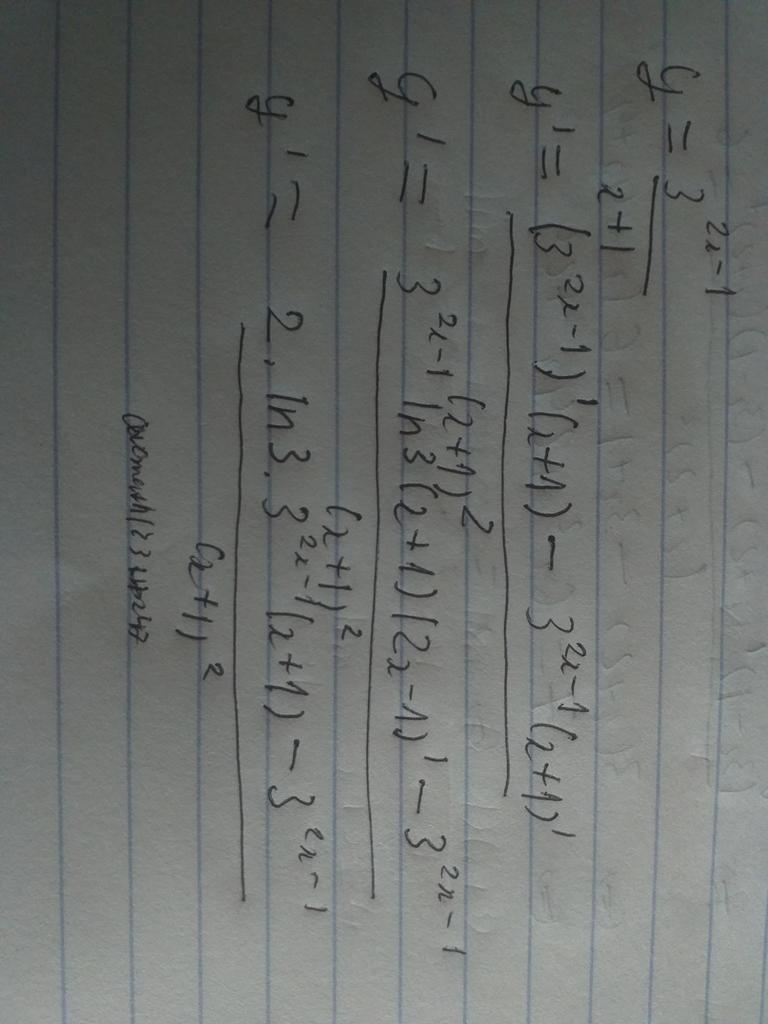 y = 3^{2x-1}
x+1
y' = (3^{2x-1})'(x+1) - 3^{2x-1}(x+1)'
(x+1)^2
y' = 3^{2x-1} ln3 (x+1)(2x-1)' - 3^{2x-1}
(x+1)^2
y' = 2. ln3. 3^{2x-1}(x+1) - 3^{2x-1}
(x+1)^2